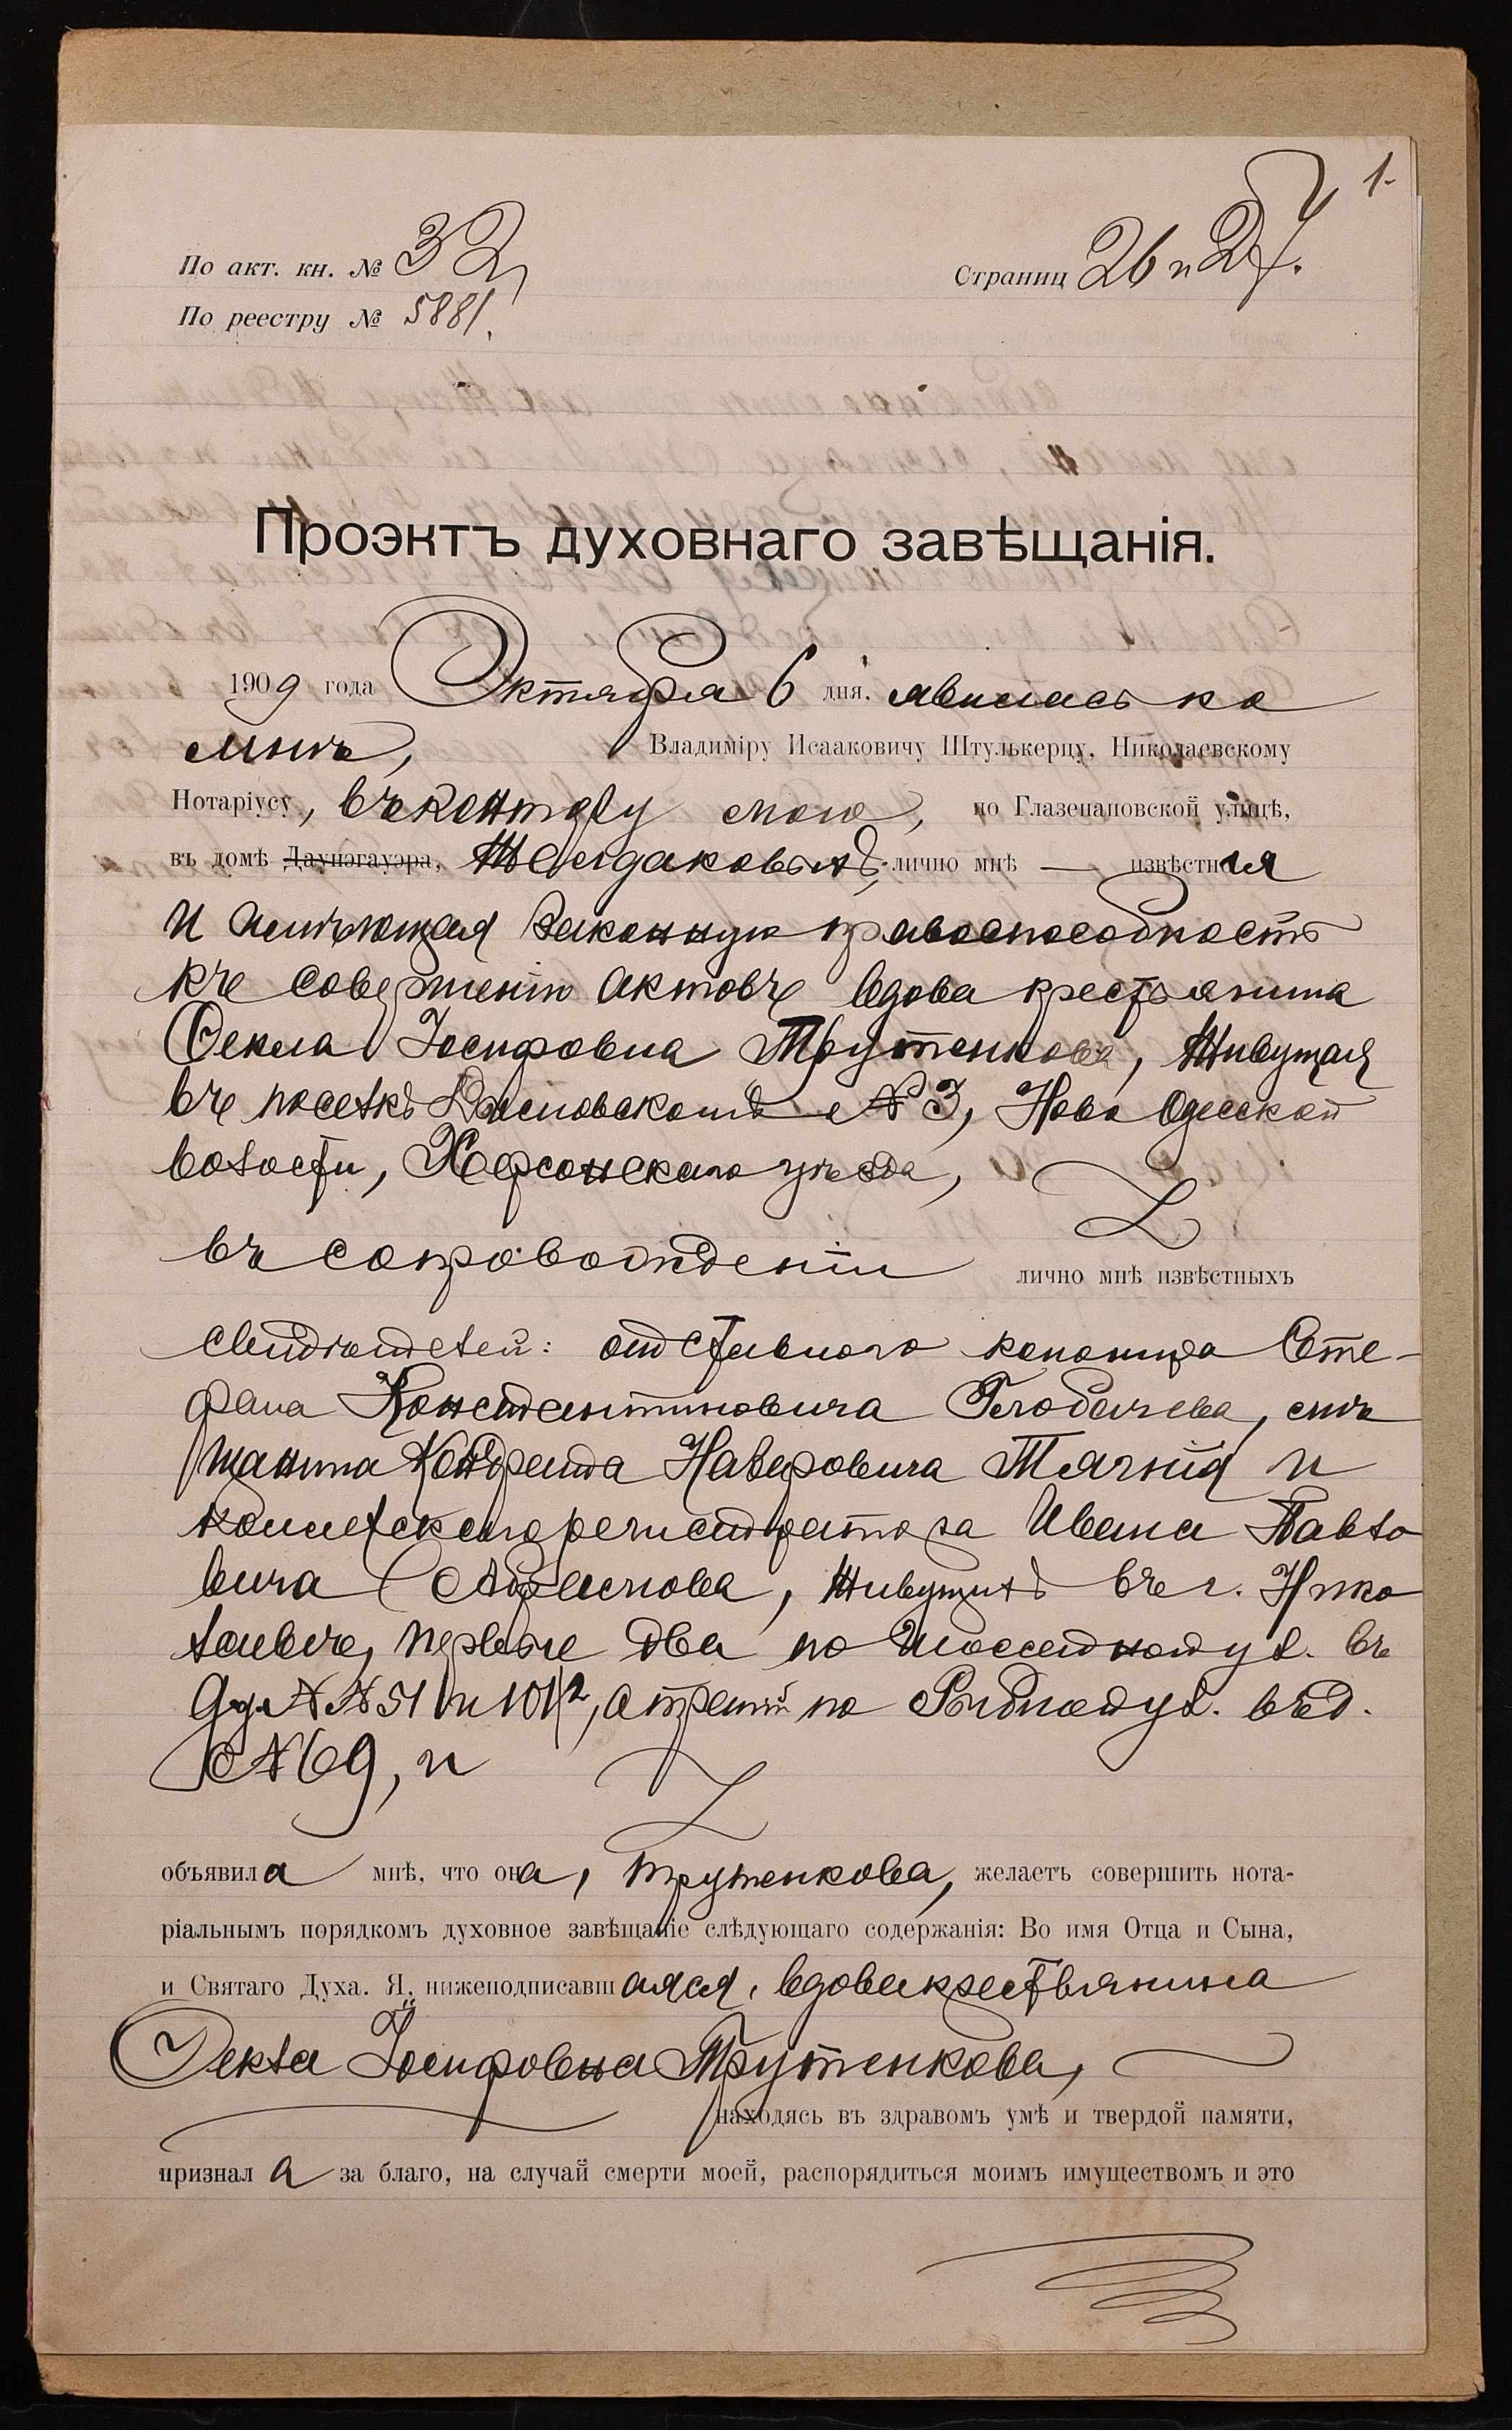 1.
По акт. кн. № 32
Страниц 26 и 27.
По реестру № 5881.
Проэктъ духовнаго завѣщанія.
1909 года Октября 6 дня, явилась ко
мнѣ, Владиміру Исааковичу Штулькерцу, Николаевскому
Нотаріусу, въ контору мою, по Глазенаповской улицѣ,
въ домѣ Даунэгауэра, Желдаковыхъ, лично мнѣ — извѣстная
и имѣющая законную правоспособность
къ совершенію актовъ вдова крестьянина
Ѳекла Іосифовна Трутенкова, живущая
въ поселкѣ № 3, Ново Одесской
волости, Херсонскаго уѣзда,
въ сопровожденіи лично мнѣ извѣстныхъ
свидѣтелей: отставного канонира Сте-
фана Константиновича Глобачева, мѣ
щанина Кондрата Назаровича и
коллежскаго регистратора Ивана Павло
вича Абрасмова, живущихъ въ г. Нико
лаевѣ, первые два по ул. въ
дд. №№ 51 и 101/2, а третій по Рыбной ул. въ д.
№ 69, и
объявила мнѣ, что она, Трутенкова, желаетъ совершить нота-
ріальнымъ порядкомъ духовное завѣщаніе слѣдующаго содержанія: Во имя Отца и Сына,
и Святаго Духа. Я, нижеподписавшаяся, вдова крестьянина
Ѳекла Іосифовна Трутенкова,
находясь въ здравомъ умѣ и твердой памяти,
признала за благо, на случай смерти моей, распорядиться моимъ имуществомъ и это